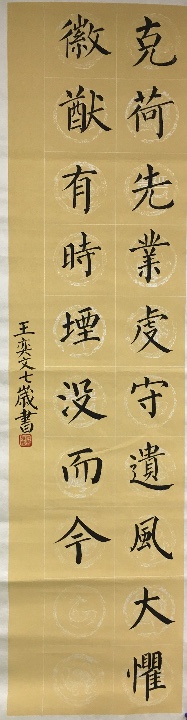 克荷先業虔守遺風大懼
徽猷有時堙没而今
王奕文七歲書